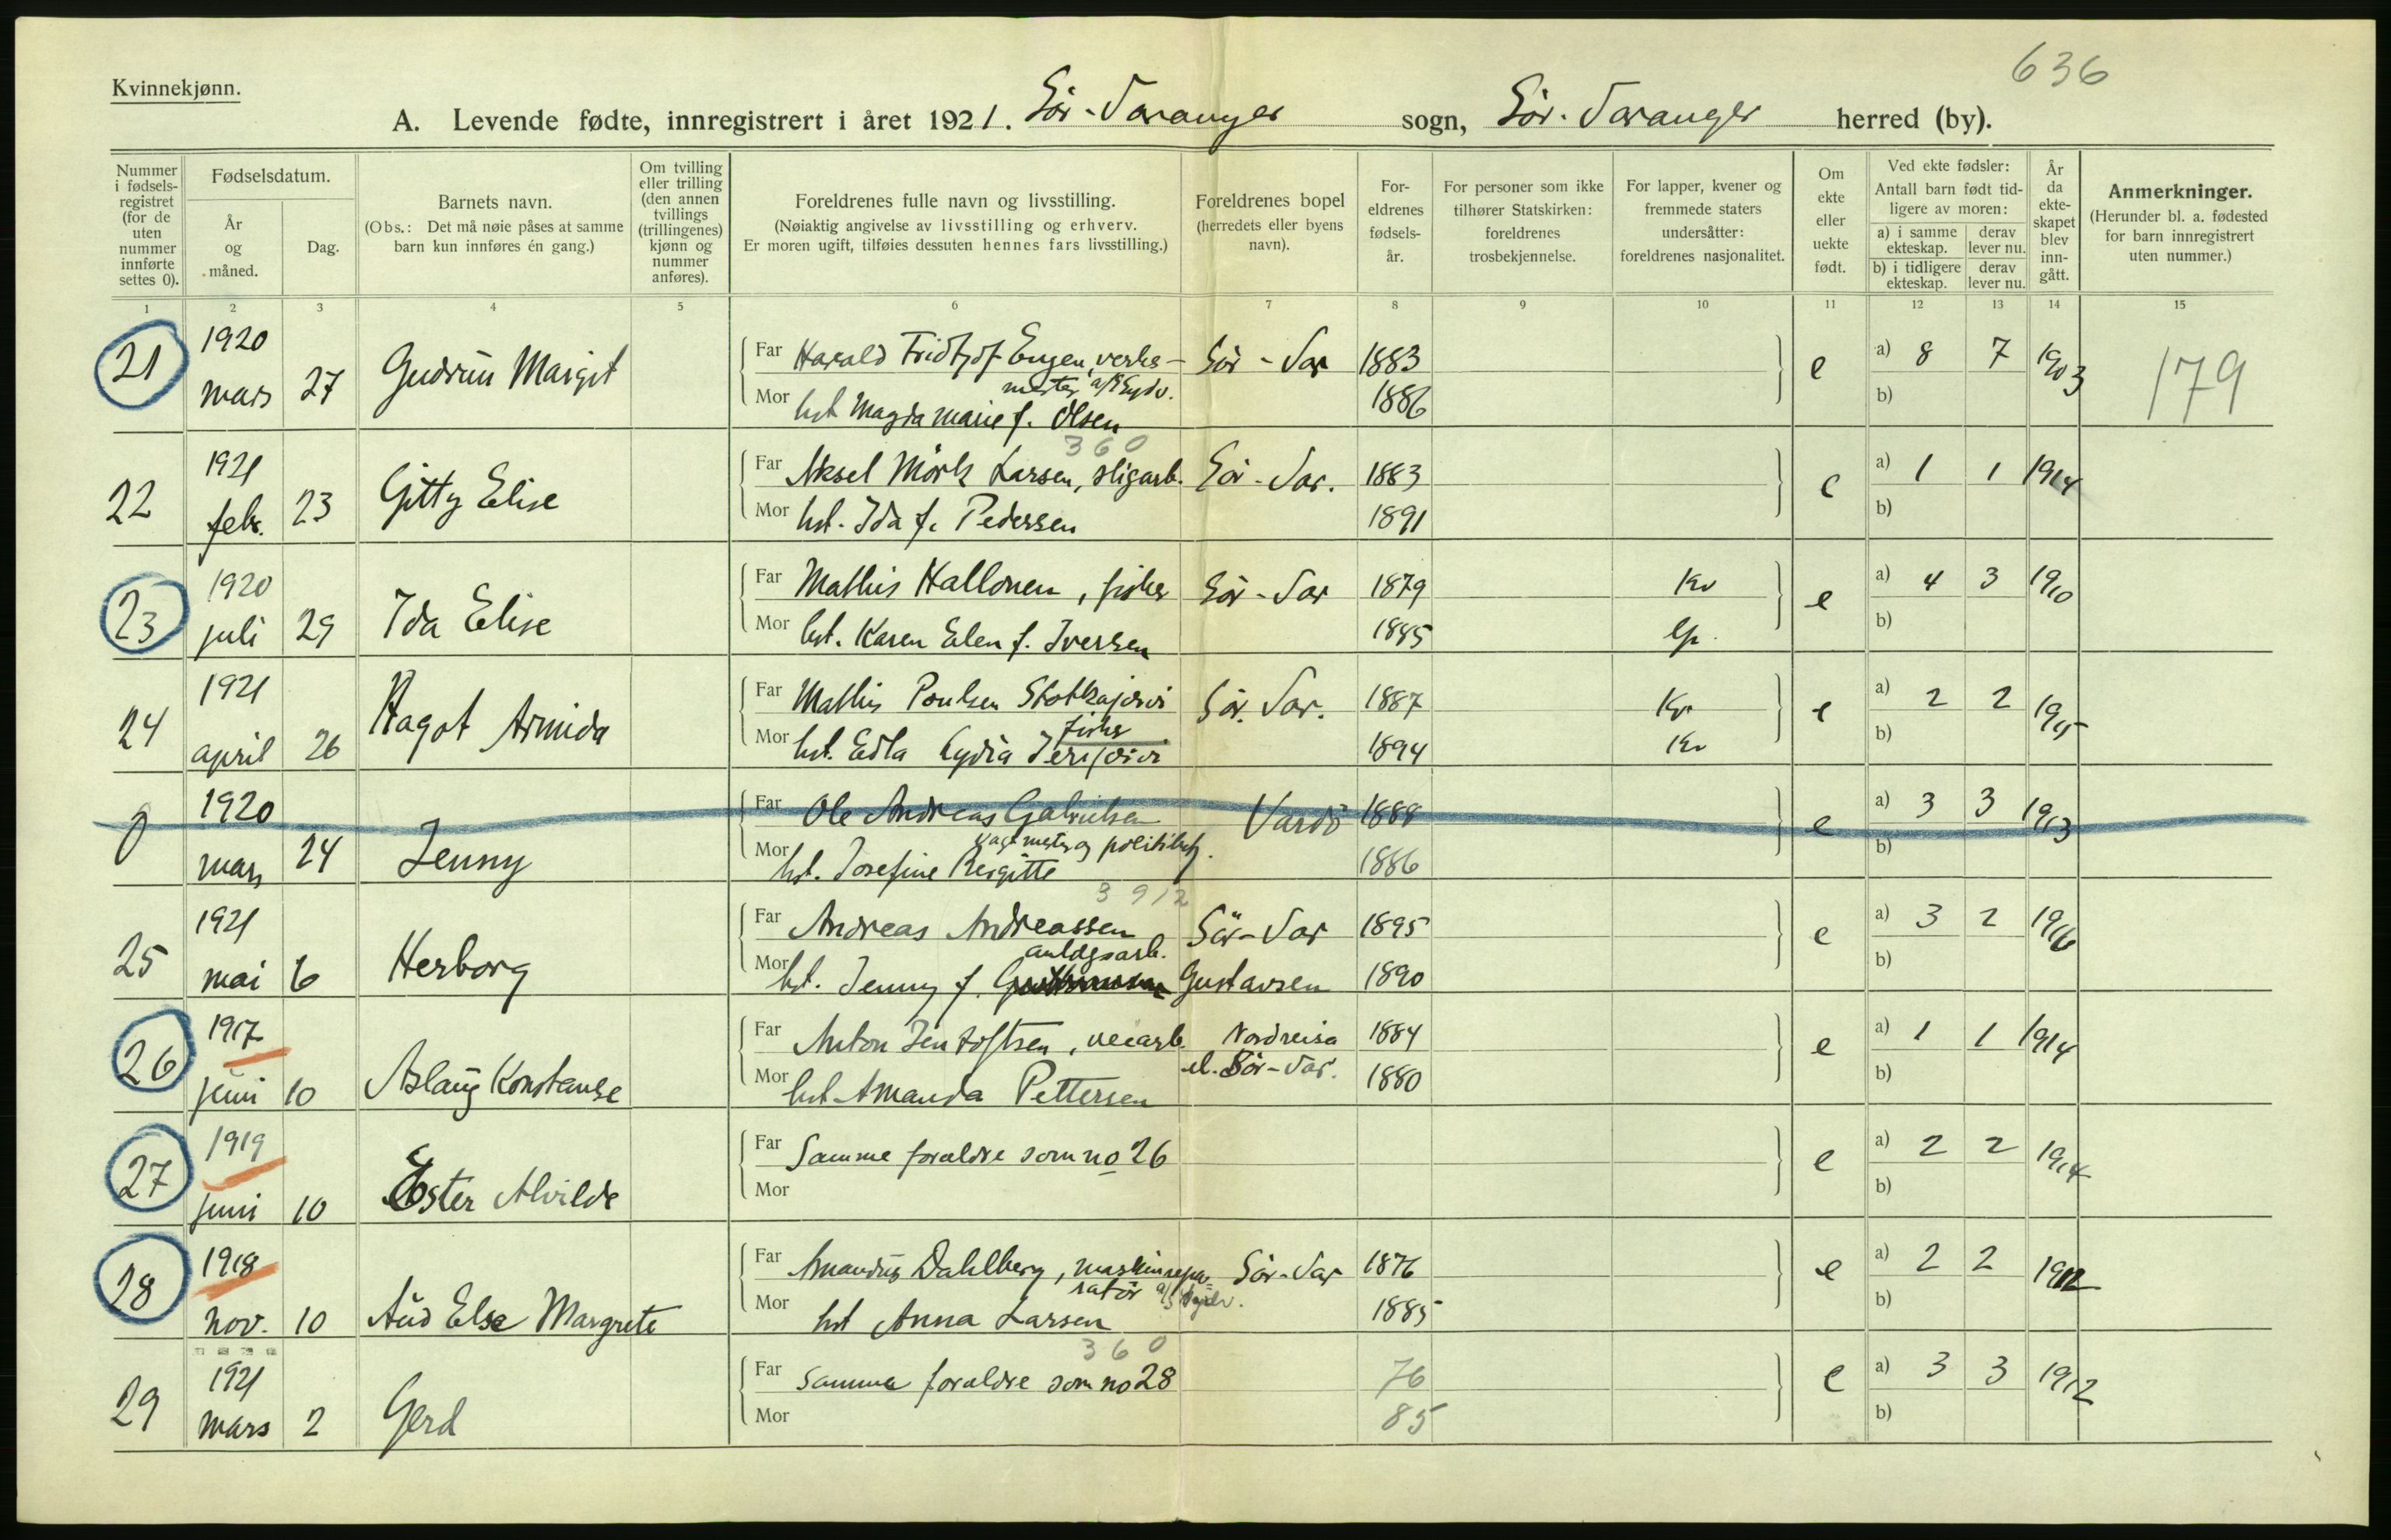 636
Kvinnekjønn.
A. Levende fødte, innregistrert i året 1921. Sör-Varanger sogn, Sör-Varanger herred (by).
Nummer i fødsels-registret (for de uten nummer innførte settes 0).
Fødselsdatum.
År og måned.
Dag.
Barnets navn.
(Obs.: Det må nøie påses at samme barn kun innføres én gang.)
Om tvilling eller trilling (den annen tvillings (trillingenes) kjønn og nummer anføres).
Foreldrenes fulle navn og livsstilling.
(Nøiaktig angivelse av livsstilling og erhverv.
Er moren ugift, tilføies dessuten hennes fars livsstilling.)
Foreldrenes bopel (herredets eller byens navn).
For-eldrenes fødsels-år.
For personer som ikke tilhører Statskirken: foreldrenes trosbekjennelse.
For lapper, kvener og fremmede staters undersåtter: foreldrenes nasjonalitet.
Om ekte eller uekte født.
Ved ekte fødsler:
Antall barn født tid-ligere av moren:
a) i samme ekteskap. derav lever nu.
b) i tidligere ekteskap. derav lever nu.
År da ekte-skapet blev inn-gått.
Anmerkninger.
(Herunder bl. a. fødested for barn innregistrert uten nummer.)
1 2 3 4 5 6 7 8 9 10 11 12 13 14 15
21 1920 mars 27 Gudrun Margit
Far Harald Fridtjof Eugen, verks- Sör-Var 1883 e a) 8 7 1903 179
mester a/s Sydv.
Mor hst Magda Marie f. Olsen 1886 b)
360
22 1921 febr. 23 Gitty Elise
Far Aksel Mörk Larsen, sligarb. Sör-Var. 1883 e a) 1 1 1914
Mor hst. Ida f. Pedersen 1891 b)
23 1920 juli 29 Ida Elise
Far Mathis Hallonen, fisker Sör-Var 1879 Kv e a) 4 3 1910
Mor hst. Karen Elen f. Iversen 1885 Lp. b)
24 1921 april 26 Ragot Armida
Far Mathis Poulsen Sör. Var. 1887 Kv e a) 2 2 1915
fisker
Mor hst. Edla Lydia 1894 Kv b)
0 1920 mars 24 Jenny
Far Ole Andreas Gabrielsen Vardö 1888 e a) 3 3 1913
Vagtmester og politibetj.
Mor hst. Josefine Bergitte 1886 b)
3912
25 1921 mai 6 Herborg
Far Andreas Andreassen Sör-Var 1895 e a) 3 2 1916
anlægsarb.
Mor hst. Jenny f. Gustavsen 1890 b)
26 1917 juni 10 Aslaug Konstanse
Far Anton Jentoftsen, veiarb. Nordreisa 1884 e a) 1 1 1914
el. Sör-Var.
Mor hst Amanda Pettersen 1880 b)
27 1919 juni 10 Ester Alvilde
Far Samme forældre som no 26 e a) 2 2 1914
Mor b)
28 1918 nov. 10 Aud Else Margrete
Far Amandus Dahlberg, maskinrepa- Sör-Var 1876 e a) 2 2 1912
ratör a/s Sydv.
Mor hst Anna Larsen 1885 b)
360
29 1921 mars 2 Gerd
Far samme forældre som no 28 76 e a) 3 3 1912
Mor 85 b)